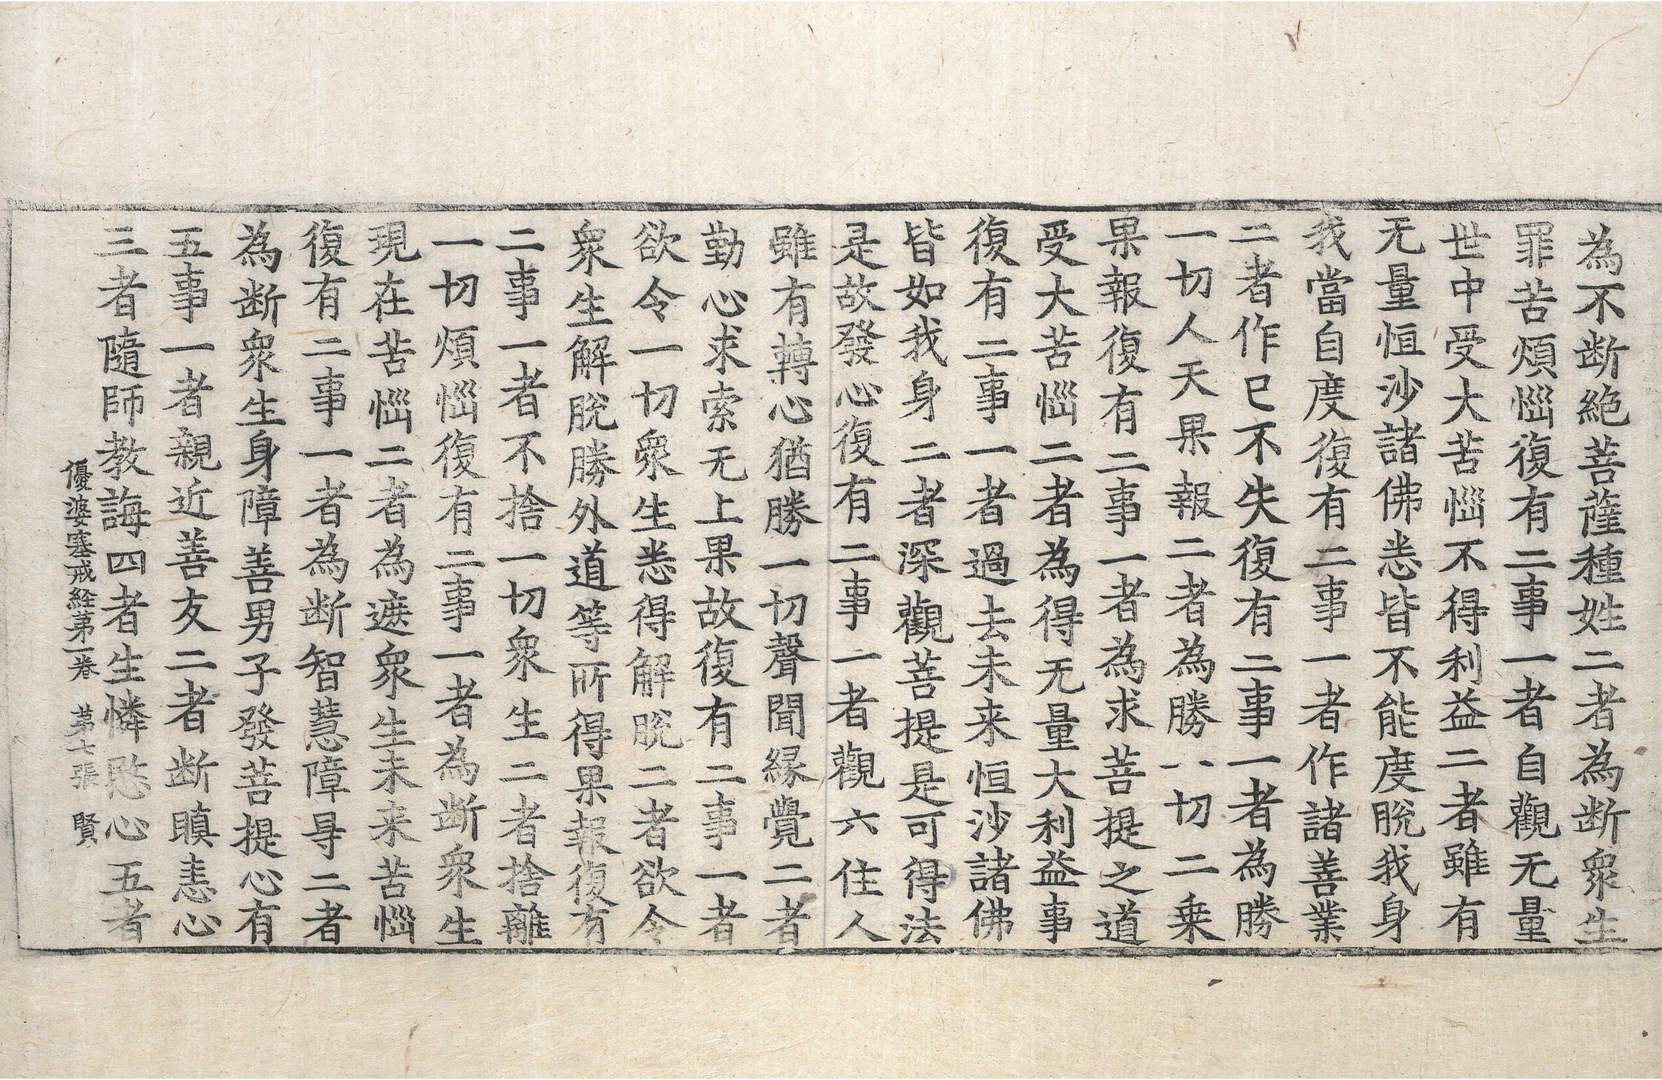 為不断絶菩薩種姓二者為断衆生
罪苦煩惱復有二事一者自觀无量
世中受大苦惱不得利益二者雖有
无量恒沙諸佛悉皆不能度脫我身
我當自度復有二事一者作諸善業
二者作已不失復有二事一者為勝
一切人天果報二者為勝一切二乗
果報復有二事一者為求菩提之道
受大苦惱二者為得无量大利益事
復有二事一者過去未来恒沙諸佛
皆如我身二者深觀菩提是可得法
是故發心復有二事一者觀六住人
雖有轉心猶勝一切聲聞縁覺二者
勤心求索无上果故復有二事一者
欲令一切衆生悉得解脫二者欲令
衆生解脫勝外道等所得果報復有
二事一者不捨一切衆生二者捨離
一切煩惱復有二事一者為断衆生
現在苦惱二者為遮衆生未来苦惱
復有二事一者為断智慧障㝵二者
為断衆生身障善男子發菩提心有
五事一者親近善友二者断瞋恚心
三者隨師教誨四者生憐愍心五者
優婆塞戒経第一卷 第七張 賢